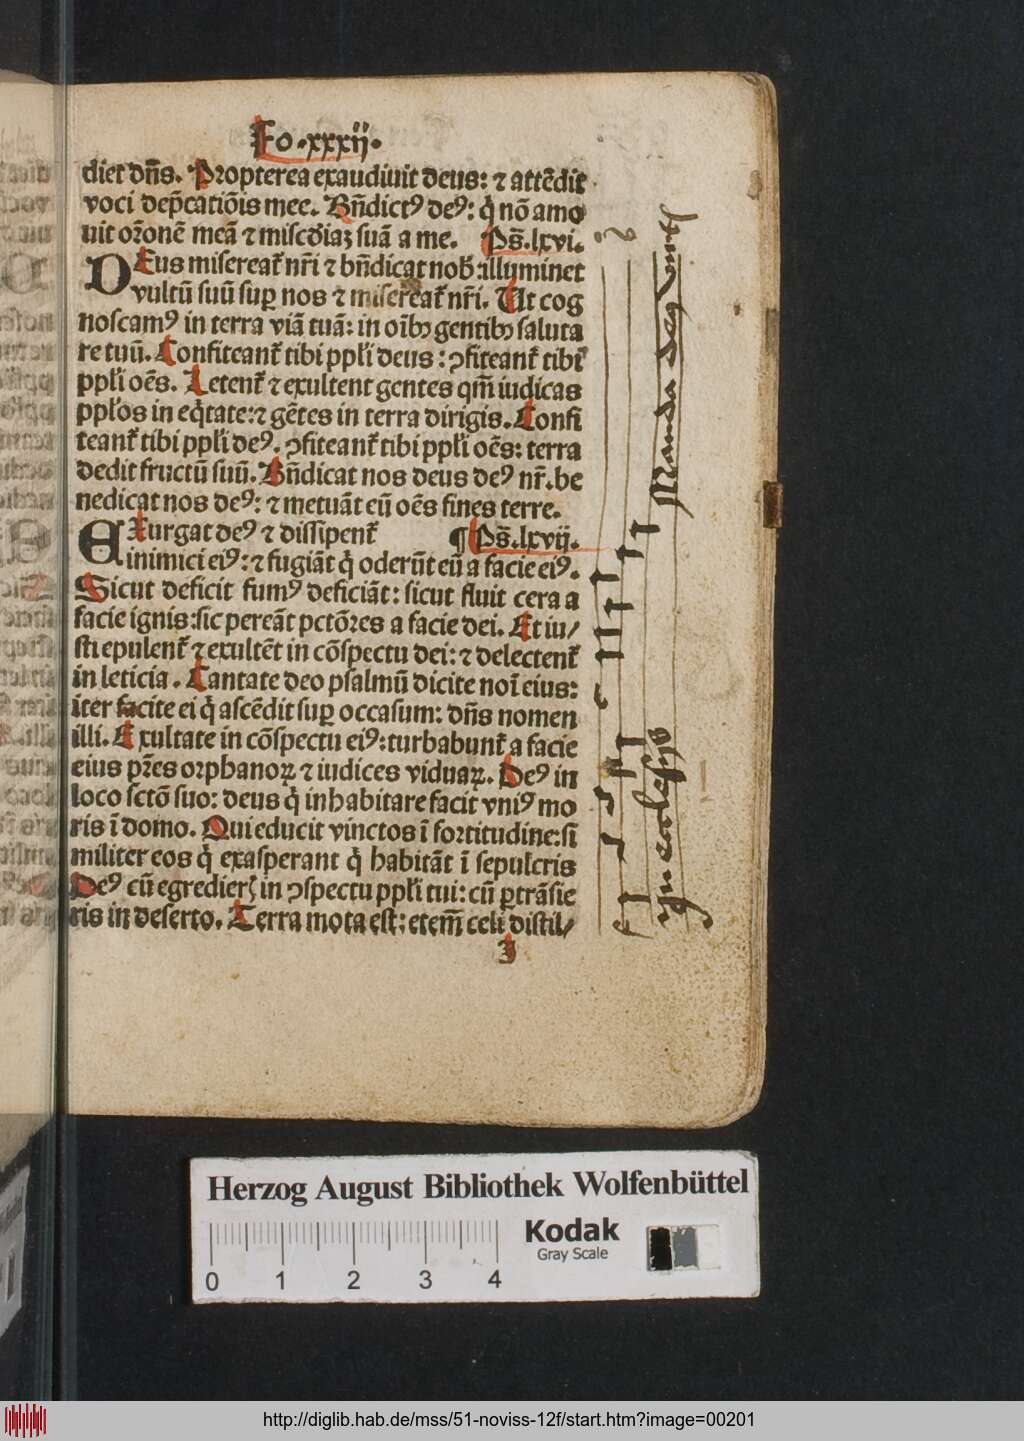 Fo.xxxij.
diet dn̄s. Propterea exaudiuit deus: ⁊ attēdit
voci dep̄catiōis mee. Bn̄dictꝰ deꝰ: q̇ nō amo
uit or̄onē meā ⁊ misc̄diaꝫ suā a me. Ps̄.lxvi.
DEus misereat᷑ nr̄i ⁊ bn̄dicat nob̄: illuminet
vultū suū suꝑ nos ⁊ misereat᷑ nr̄i. Ut cog
noscamꝰ in terra viā tuā: in oībꝫ gentibꝫ saluta
re tuū. Confiteant᷑ tibi ppl̄i deus: ꝯfiteant᷑ tibi
ppl̄i oēs. Letent᷑ ⁊ exultent gentes qm̄ iudicas
ppl̄os in eq̇tate: ⁊ gētes in terra dirigis. Confi
teant᷑ tibi ppl̄i deꝰ. ꝯfiteant᷑ tibi ppl̄i oēs: terra
dedit fructū suū. Bn̄dicat nos deus deꝰ nr̄. be
nedicat nos deꝰ: ⁊ metuāt eū oēs fines terre.
EXurgat deꝰ ⁊ dissipent᷑ ¶ Ps̄.lxvij.
inimici eiꝰ: ⁊ fugiāt q̇ oderūt eū a facie eiꝰ.
Sicut deficit fumꝰ deficiāt: sicut fluit cera a
facie ignis: sic pereāt pctōres a facie dei. Et iu/
sti epulent᷑ ⁊ exultēt in cōspectu dei: ⁊ delectent᷑
in leticia. Cantate deo psalmū dicite noī eius:
iter facite ei q̇ ascēdit suꝑ occasum: dn̄s nomen
illi. Exultate in cōspectu eiꝰ: turbabunt᷑ a facie
eius pr̄es orphanoꝝ ⁊ iudices viduaꝝ. Deꝰ in
loco sctō suo: deus q̇ inhabitare facit vniꝰ mo
ris ī domo. Qui educit vinctos ī fortitudine: si
militer eos q̇ exasperant q̇ habitāt ī sepulcris
Deꝰ cū egredierꝭ in ꝯspectu ppl̄i tui: cū ꝑtrāsie
ris in deserto. Terra mota est: etem̄ celi distil/
I
In ecclesijs
Manda deꝰ virtuti
Herzog August Bibliothek Wolfenbüttel
Kodak
Gray Scale
0 1 2 3 4
http://diglib.hab.de/mss/51-noviss-12f/start.htm?image=00201